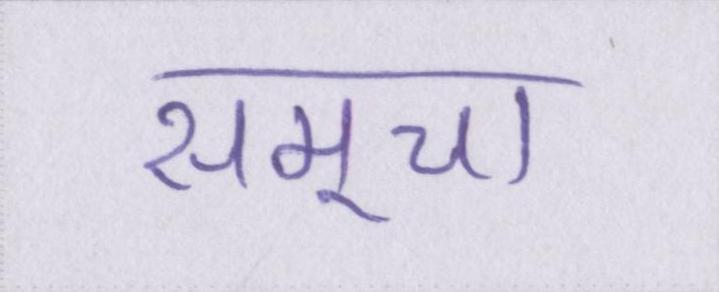 समूचा